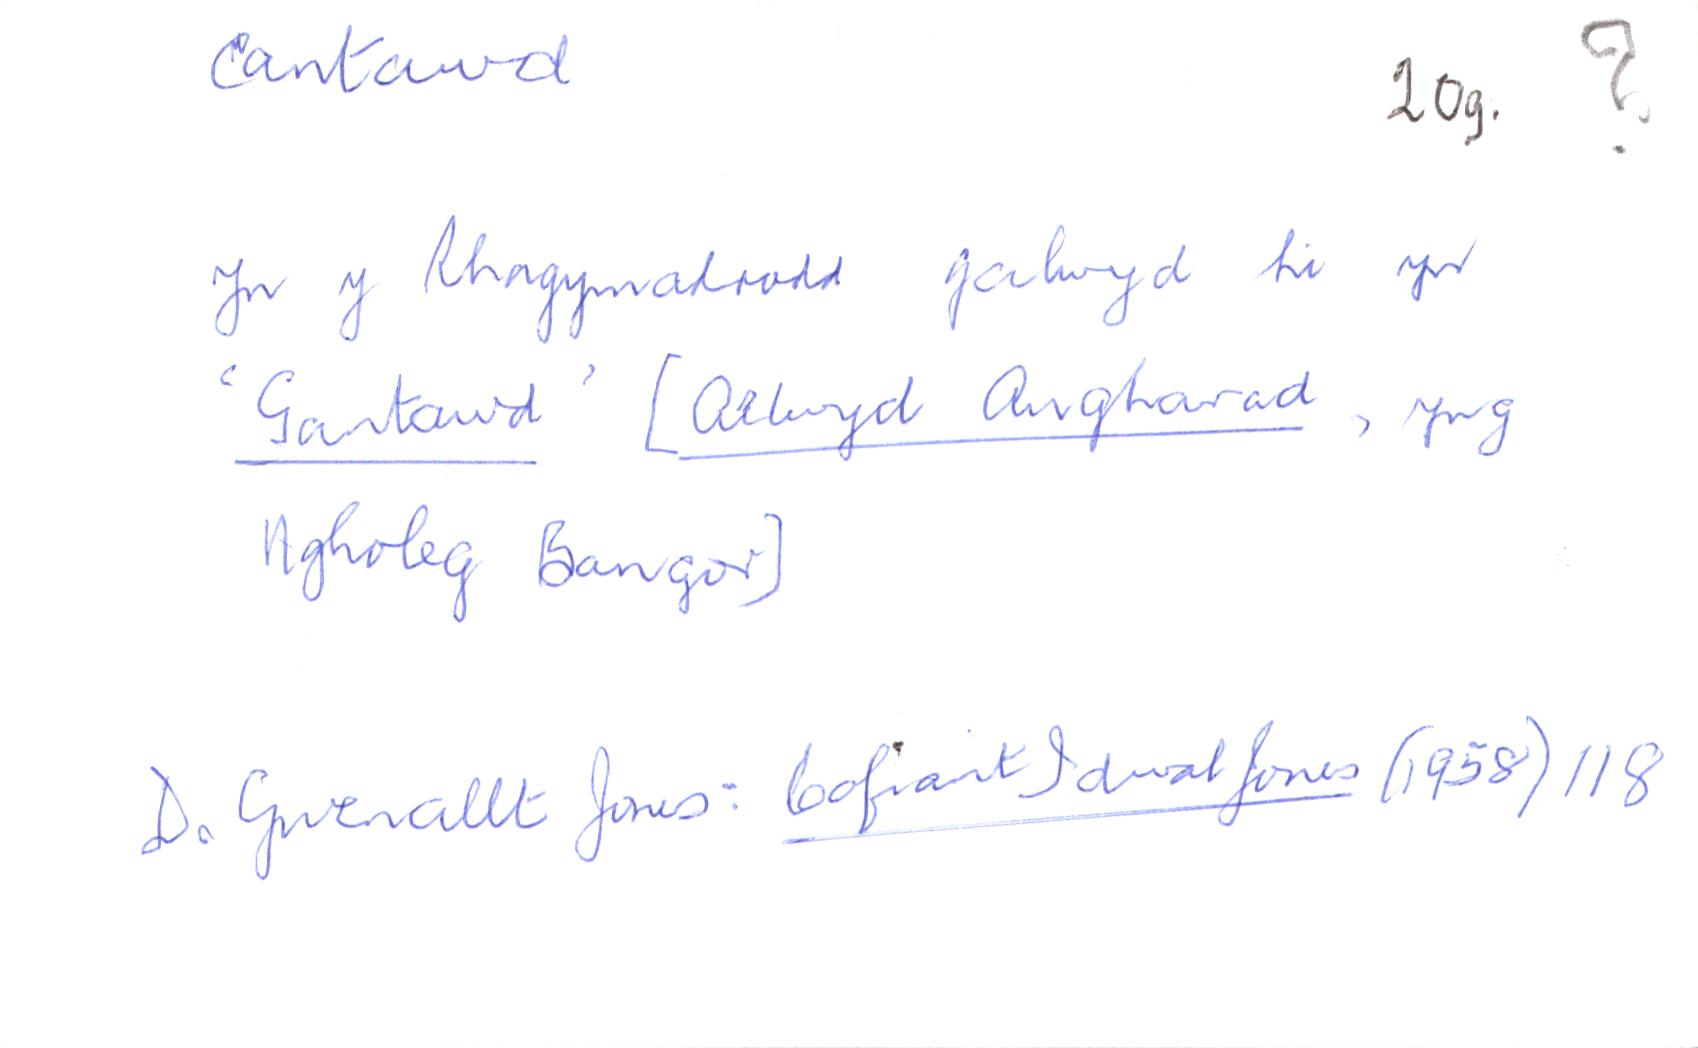 Cantawd
20g. ?
Yn y Rhagymadrodd galwyd hi yn
'Gantawd' [Aelwyd Angharad, yng
Ngholeg Bangor]
D. Gwenallt Jones: Cofiant Idwal Jones (1958) 118